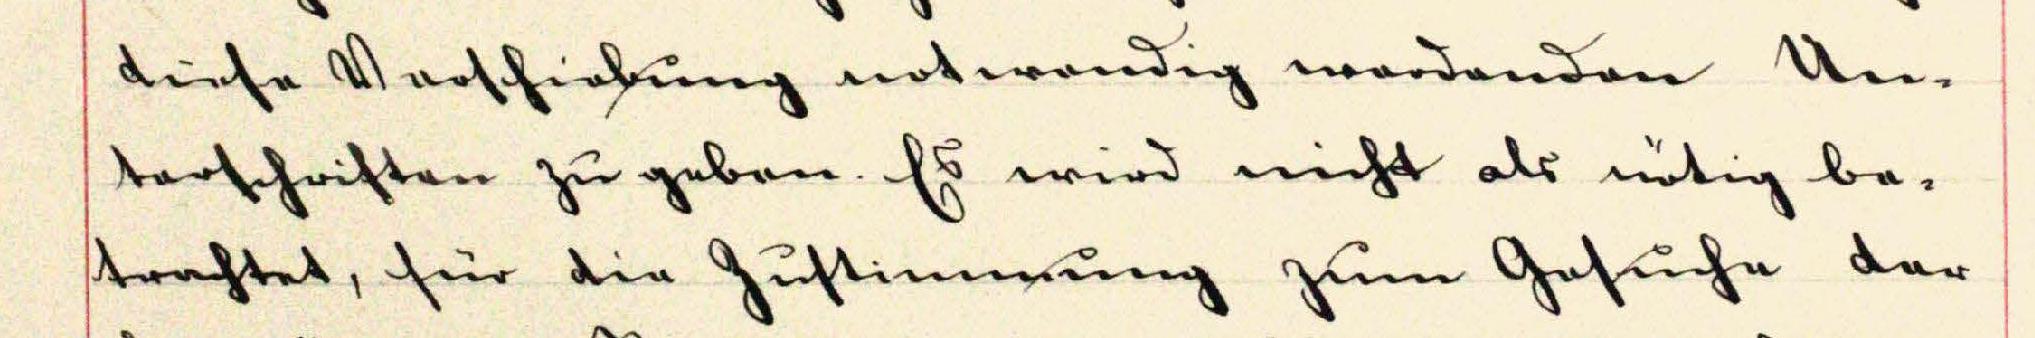 diese Verschiebung notwendig werdenden Un-
terschriften zu geben. Es wird nicht als nötig be-
trachtet, für die Zustimmung zum Gesuche der